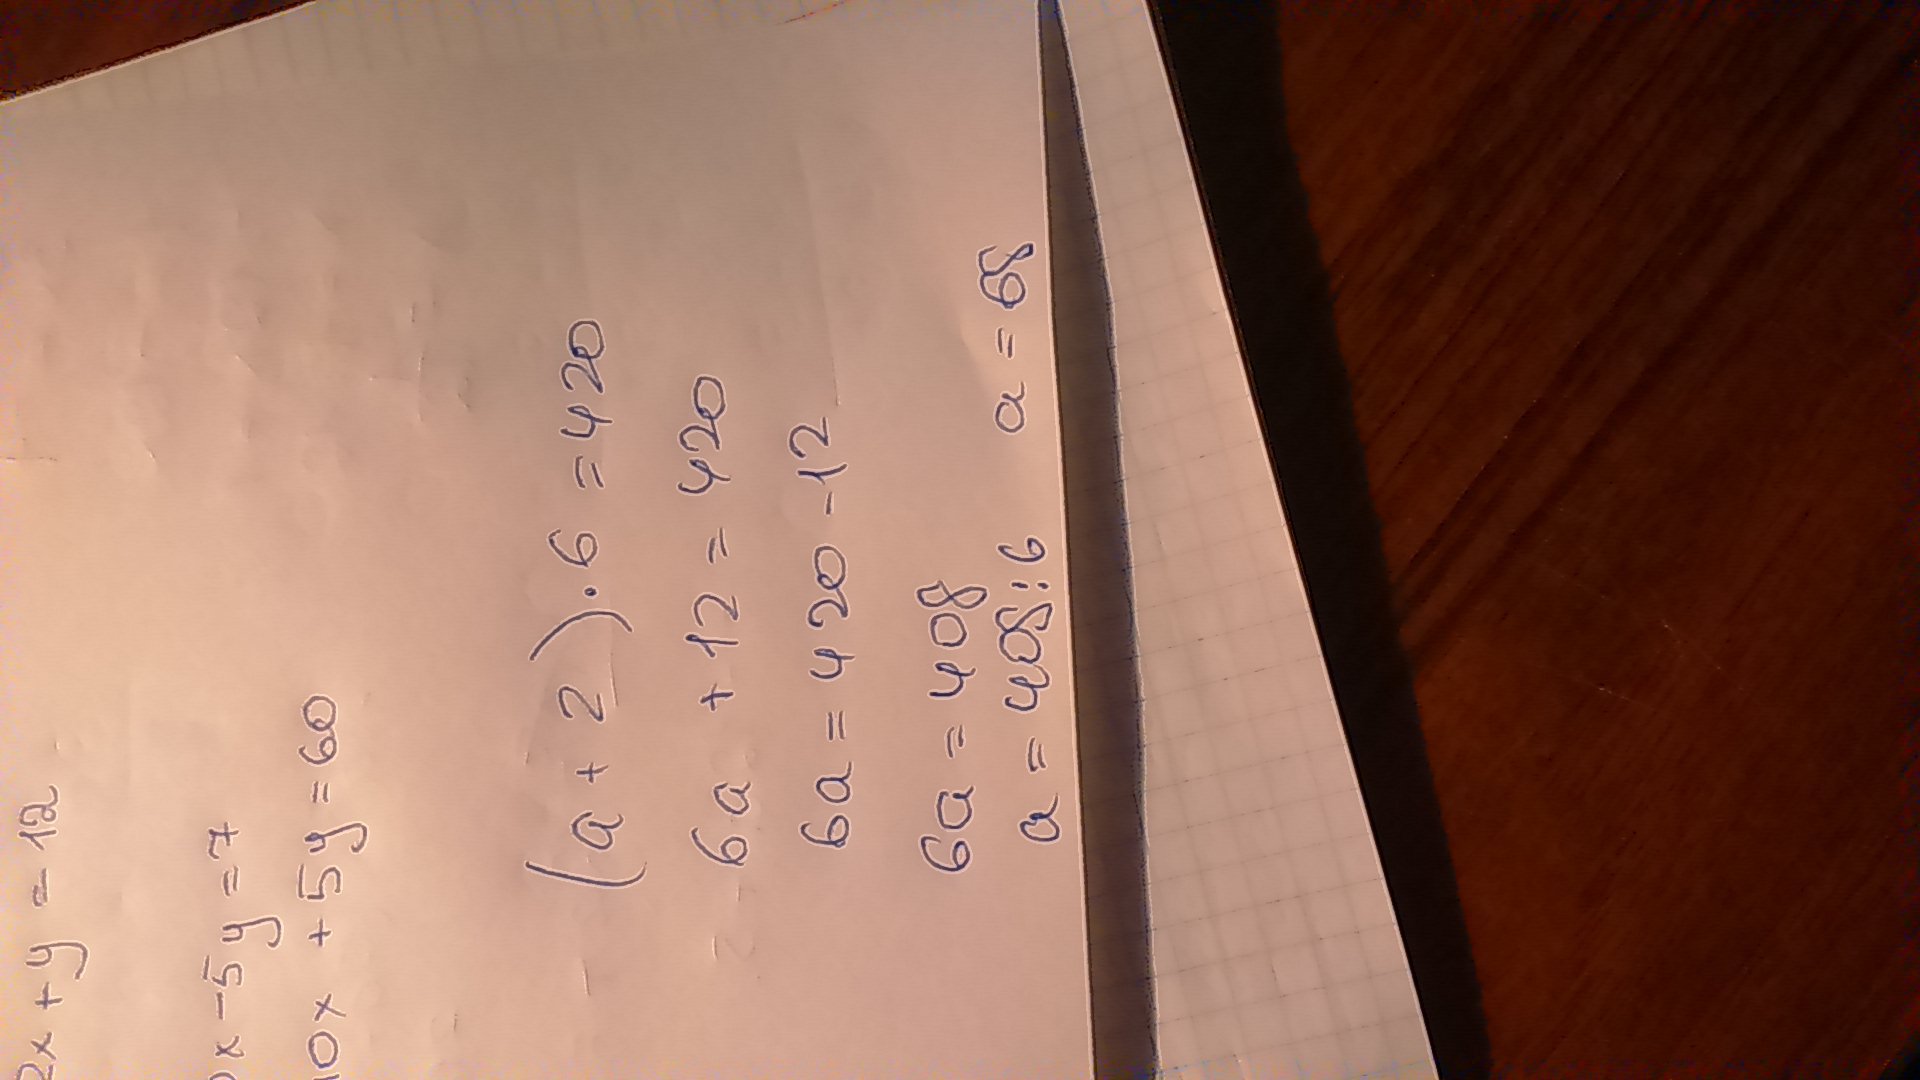 2x + y = 12
x - 5y = 7
10x + 5y = 60
(a + 2) · 6 = 420
6a + 12 = 420
6a = 420 - 12
6a = 408
a = 408 : 6 a = 68